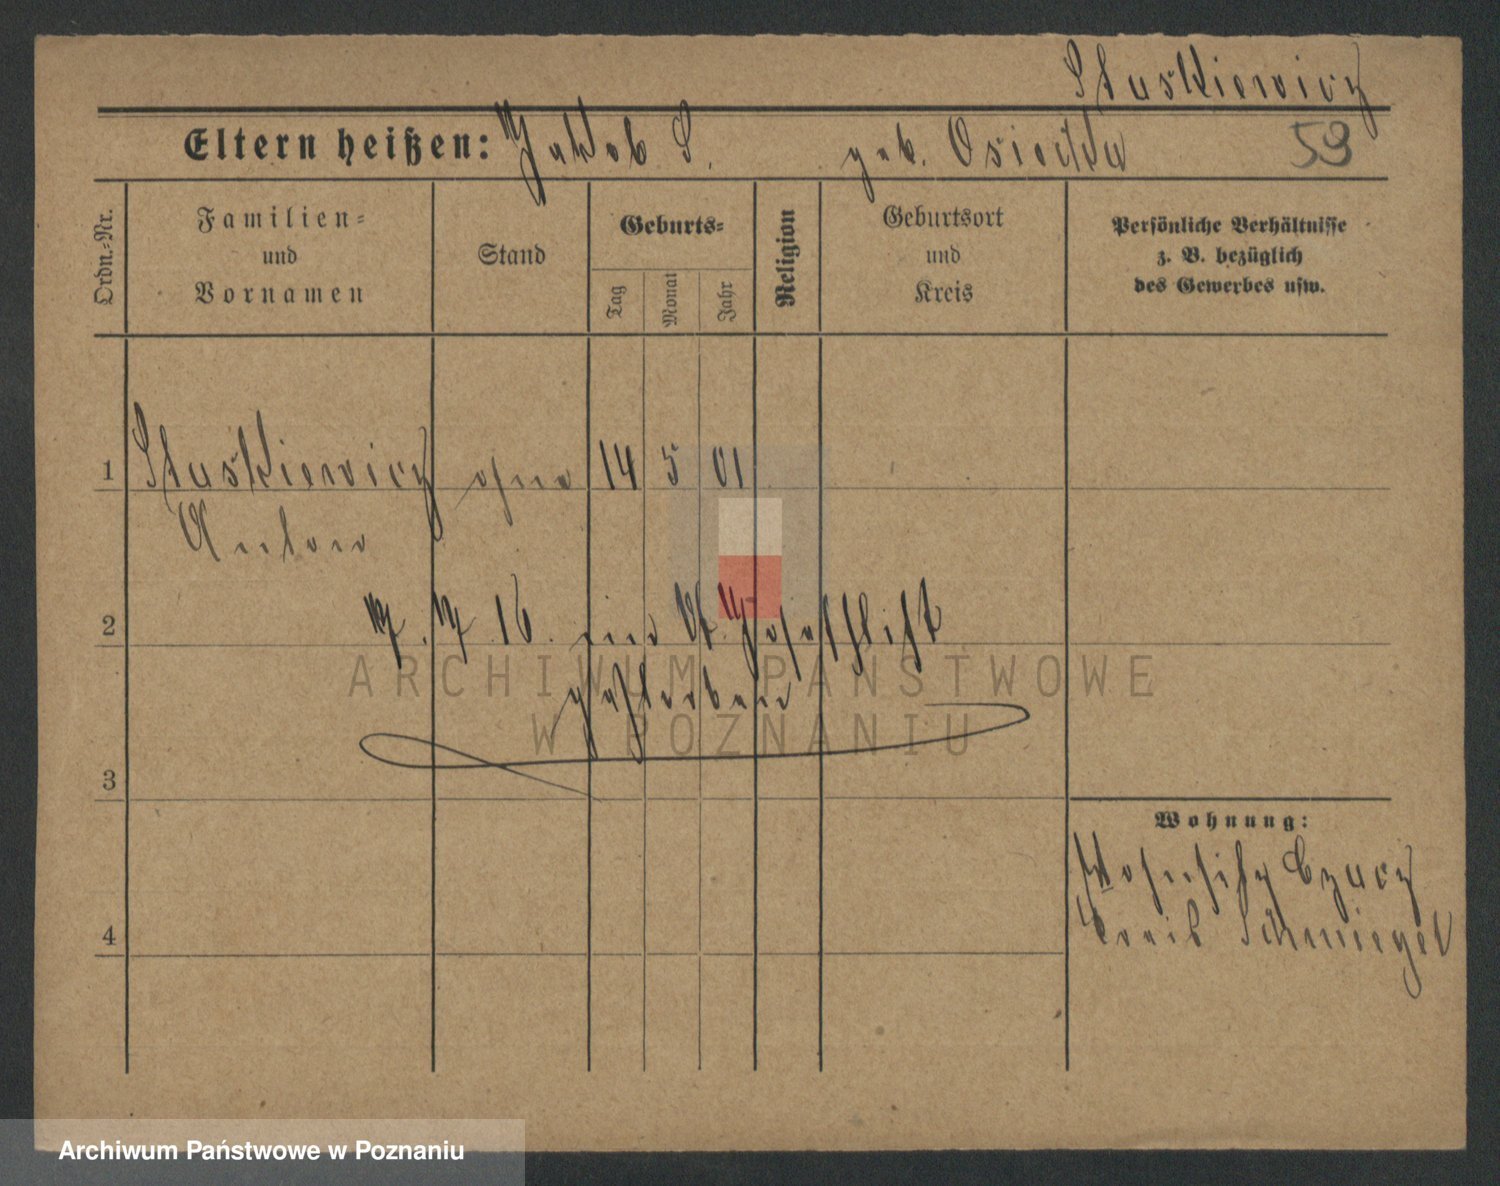 Stuskiewicz
Eltern heißen: Jakob S. geb. Osiecka 59
Ordn.-Nr.
Familien-
und
Vornamen
Stand
Geburts-
Tag
Monat
Jahr
Religion
Geburtsort
und
Kreis
Persönliche Verhältnisse
z. B. bezüglich
des Gewerbes usw.
1 Stuskiewicz ohne 14 5 01
Anton
2 16. im St. Josephstift
gestorben
3
4
Wohnung:
Wohnsitz Czacz
Kreis Schmiegel
ARCHIWUM PAŃSTWOWE
W POZNANIU
Archiwum Państwowe w Poznaniu